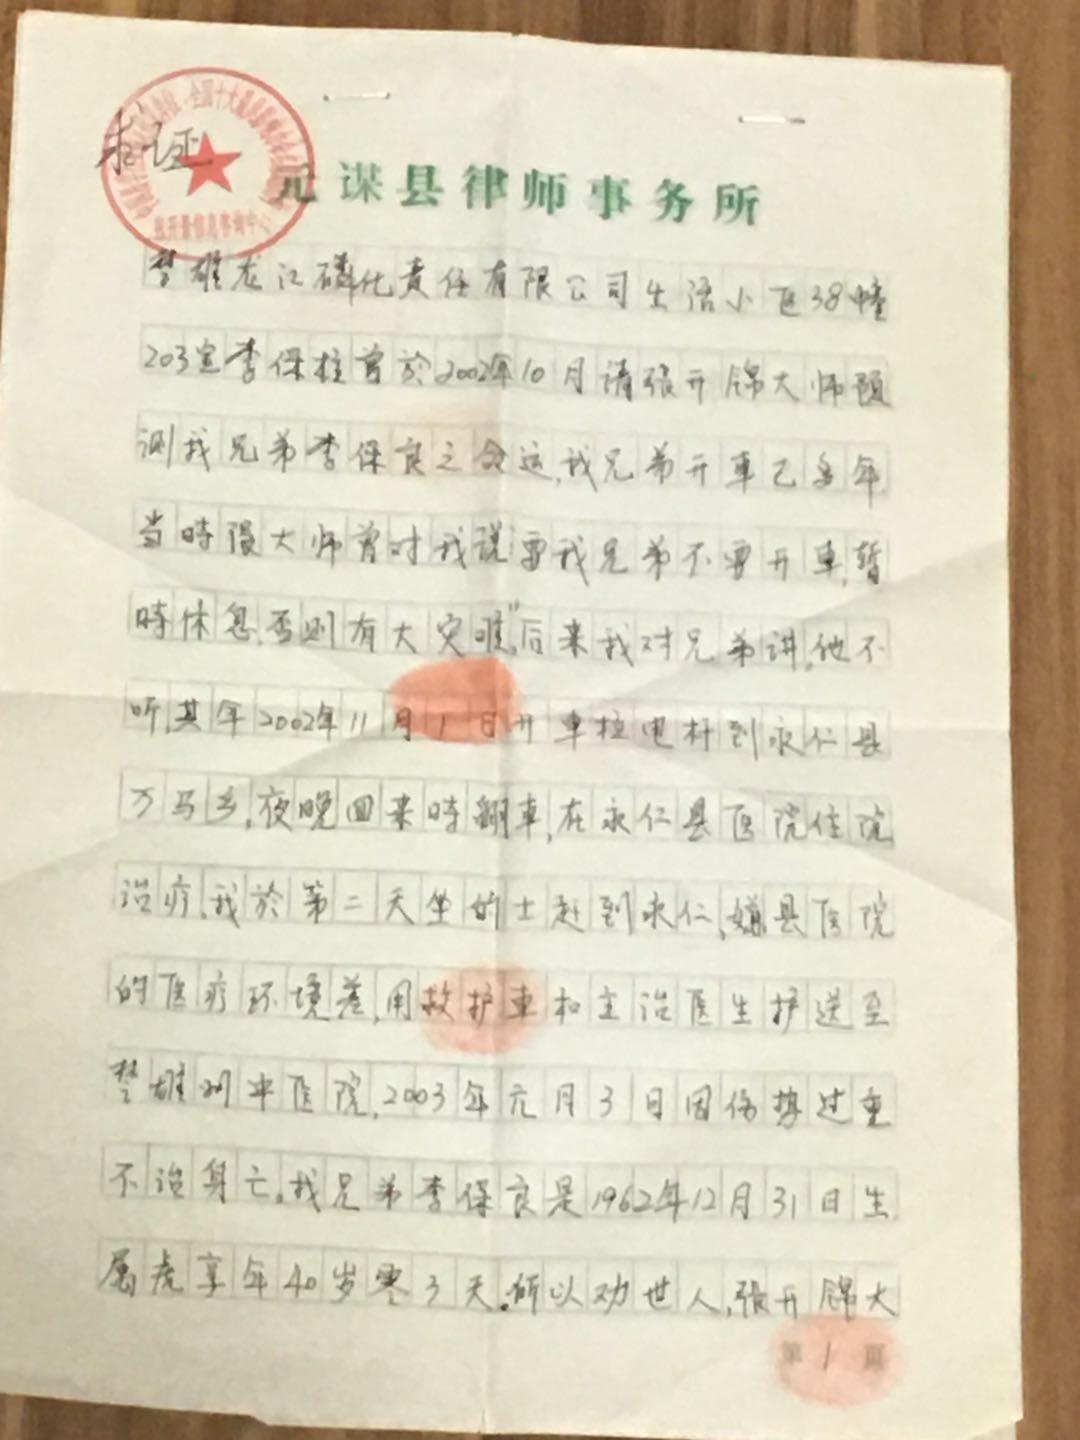 元谋县律师事务所
楚雄龙江磷化责任有限公司生活小区38幢
203室李保柱曾於2002年10月请张开锦大师预
测我兄弟李保良之命运,我兄弟开車已多年,
当時張大师曾对我说:"要我兄弟不要开車,暂
時休息,否则有大灾难",后来我对兄弟讲,他不
听,其年2002年11月1日开車拉电杆到永仁县
万马乡,夜晚回来時翻車,在永仁县医院住院
治疗,我於第二天坐的士赶到永仁,嫌县医院
的医疗环境差,用救护車和主治医生护送至
楚雄州中医院,2003年元月3日因伤势过重
不治身亡,我兄弟李保良是1962年12月31日生,
属虎享年40岁零3天。所以劝世人,張开锦大
第1頁